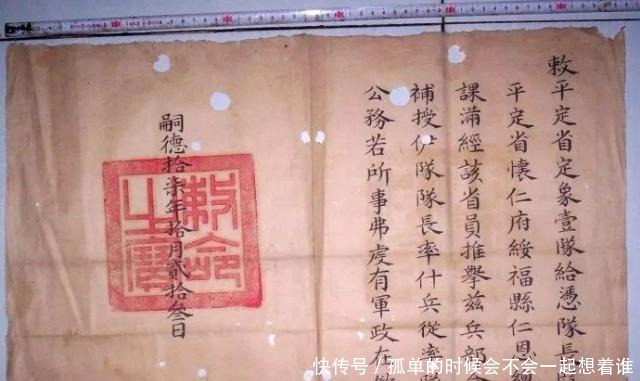 敕平定省定象壹隊給憑隊長
平定省懷仁府綏福縣仁恩
課滿經該省員推舉茲兵部
補授伊隊隊長率什兵從率
公務若所事弗虔有軍政在
嗣德拾柒年拾月貳拾叁日
敕命之寶
快传号 / 孤单的时候会不会一起想着谁